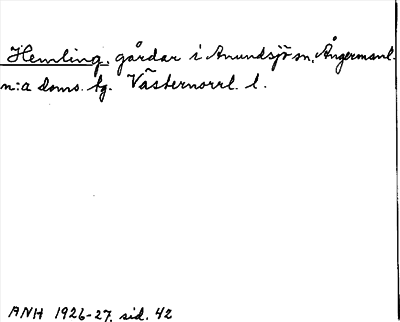 Hemling, gårdar i Anundsjö sn, Ångermanl.
n:a doms. tg. Västernorrl. l.
ANH 1926-27, sid. 42